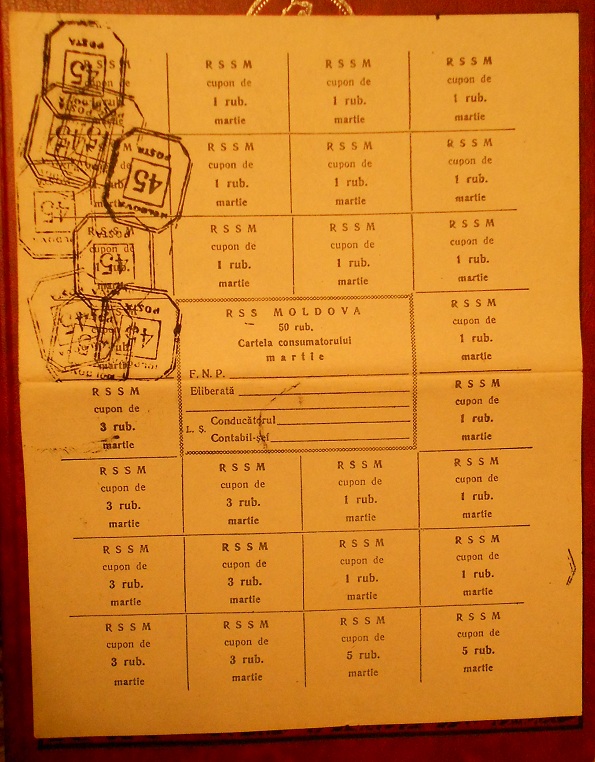 POSTA
45
cupon de
R S S M
cupon de
1 rub.
martie
R S S M
cupon de
1 rub.
martie
R S S M
cupon de
1 rub.
martie
POSTA
45
MOLDOVA
R S S M
cupon de
1 rub.
martie
R S S M
cupon de
1 rub.
martie
R S S M
cupon de
1 rub.
martie
R S S M
cupon de
rub.
45
R S S M
cupon de
1 rub.
martie
R S S M
cupon de
1 rub.
martie
R S S M
cupon de
1 rub.
martie
POSTA
45
RSS MOLDOVA
50 rub.
Cartela consumatorului
martie
F. N. P.
Eliberată
L. Ş.
Conducătorul
Contabil-şef
R S S M
cupon de
1 rub.
martie
R S S M
cupon de
3 rub.
martie
R S S M
cupon de
1 rub.
martie
R S S M
cupon de
3 rub.
martie
R S S M
cupon de
3 rub.
martie
R S S M
cupon de
1 rub.
martie
R S S M
cupon de
1 rub.
martie
R S S M
cupon de
3 rub.
martie
R S S M
cupon de
3 rub.
martie
R S S M
cupon de
1 rub.
martie
R S S M
cupon de
1 rub.
martie
R S S M
cupon de
3 rub.
martie
R S S M
cupon de
3 rub.
martie
R S S M
cupon de
5 rub.
martie
R S S M
cupon de
5 rub.
martie